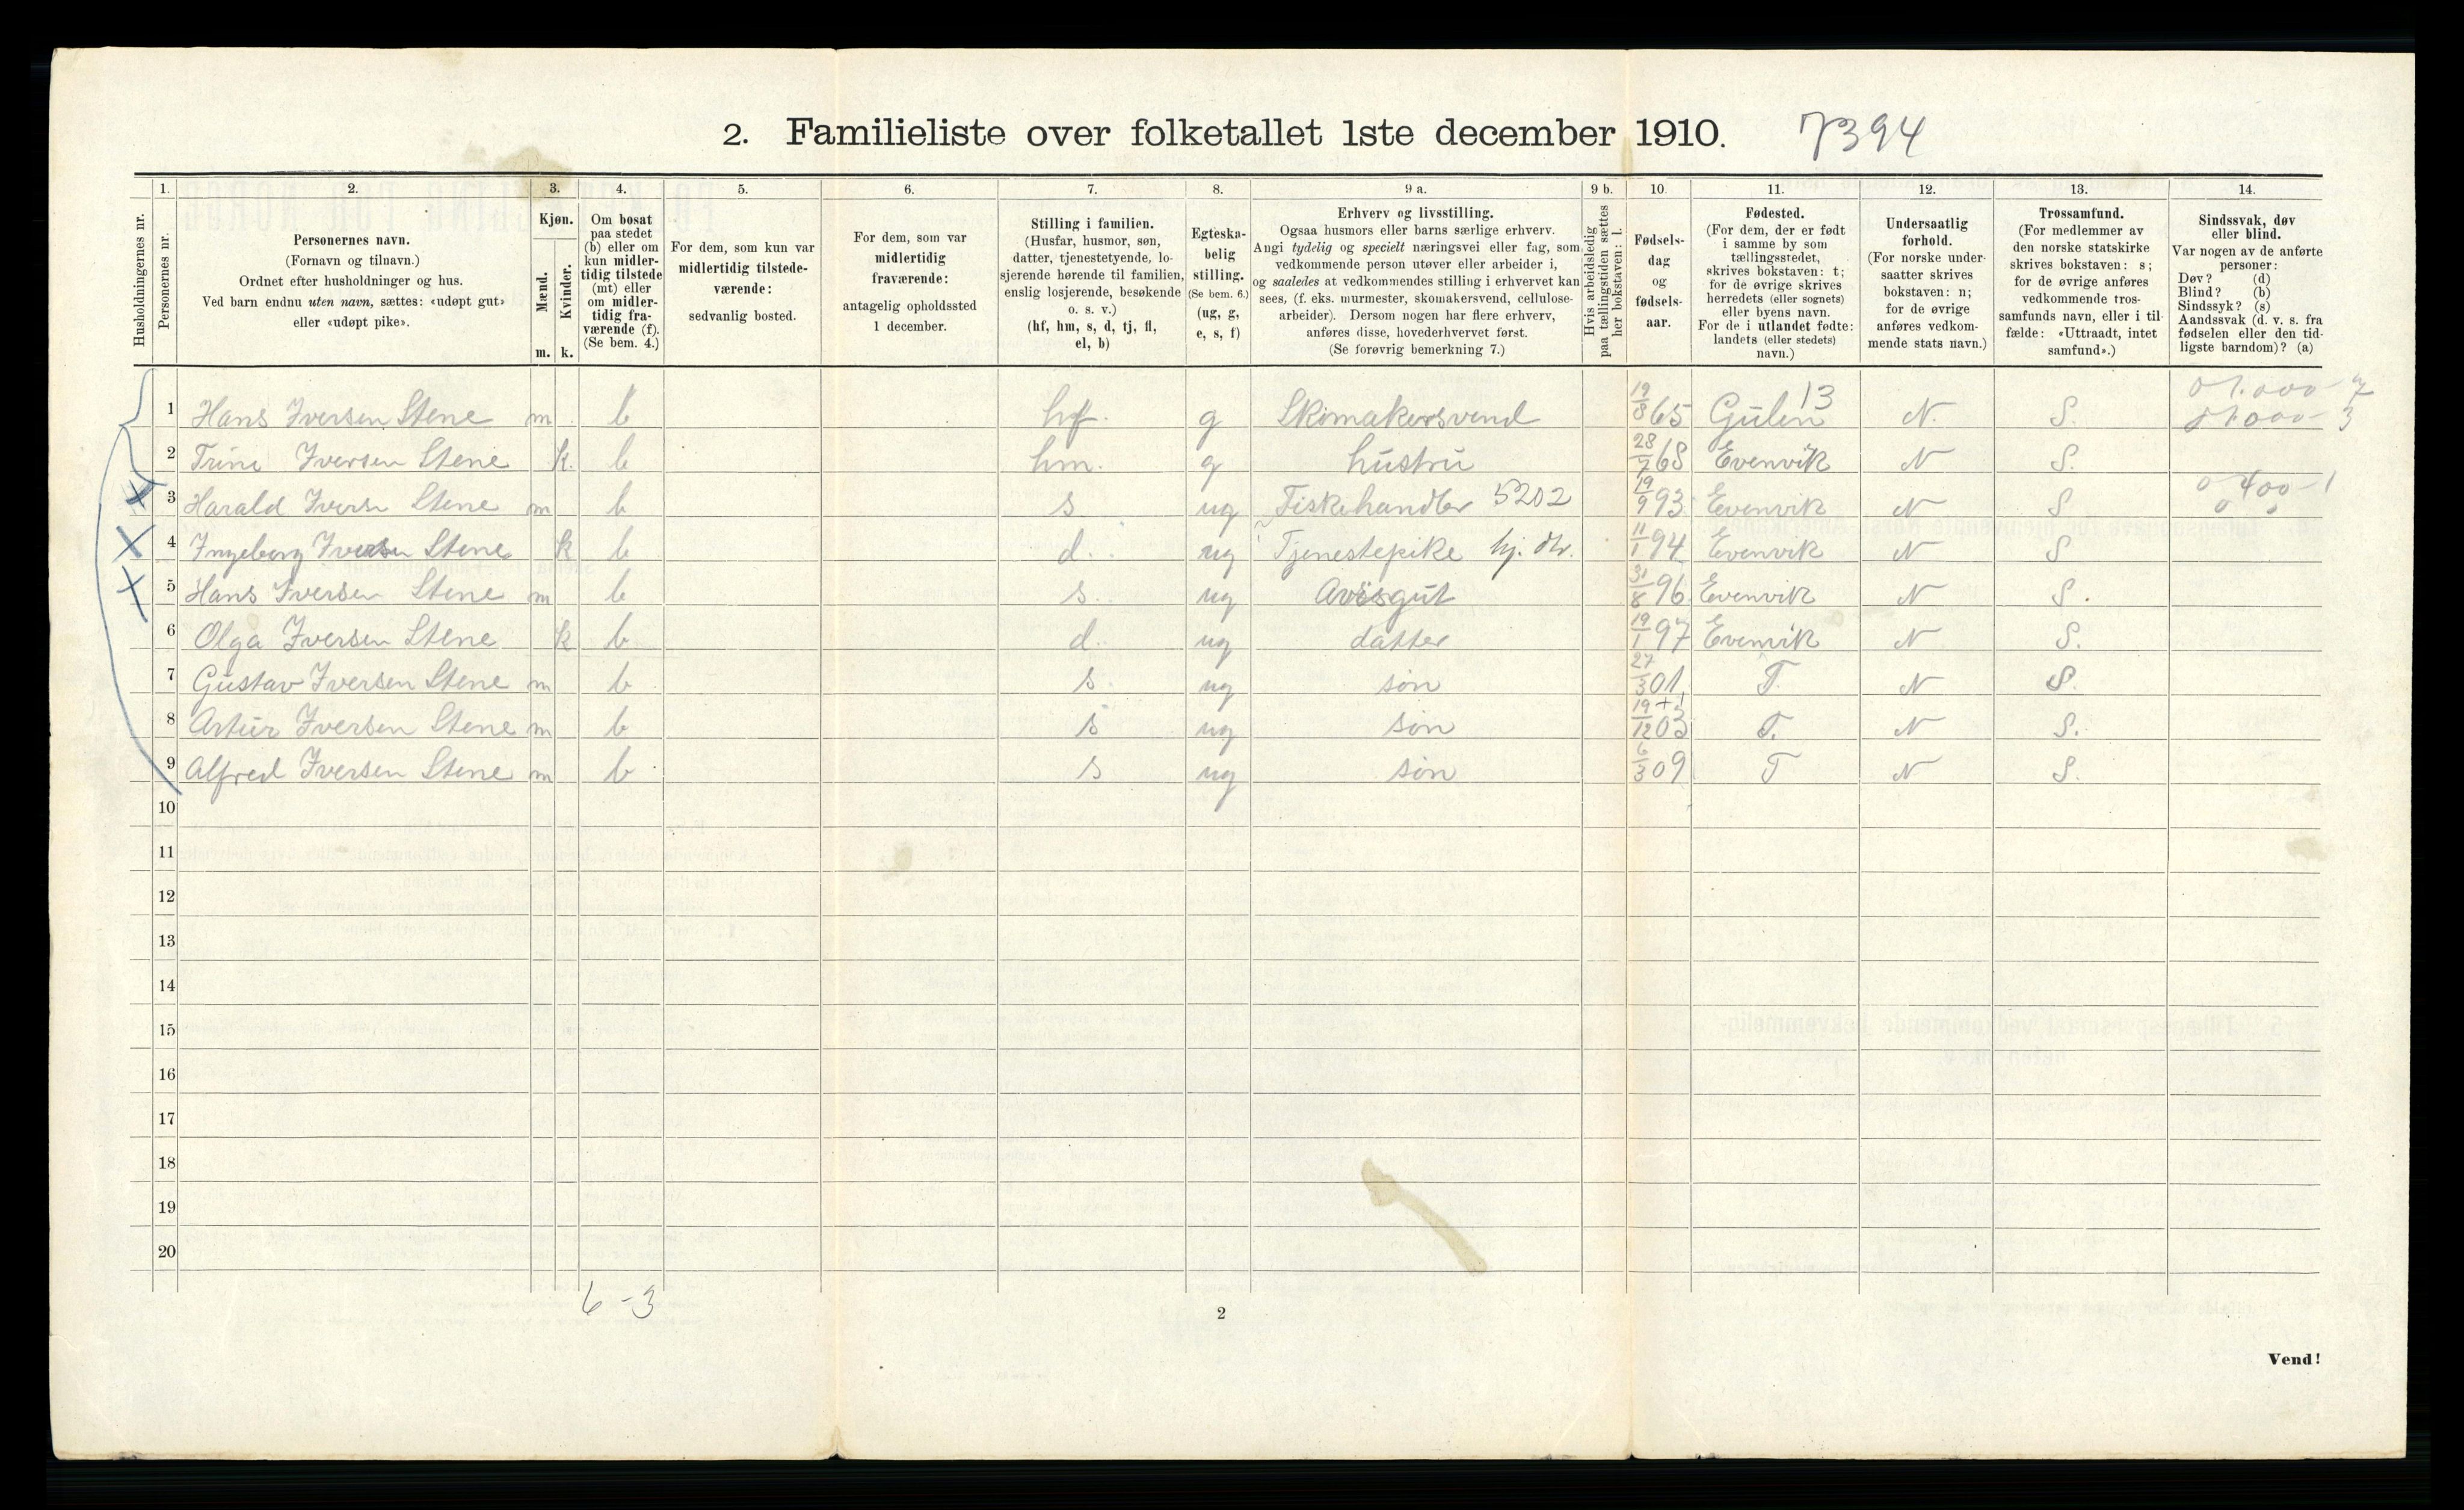 2. Familieliste over folketallet 1ste december 1910. 7394
Husholdningernes nr.
1. Personernes nr.
2. Personernes navn.
(Fornavn og tilnavn.)
Ordnet efter husholdninger og hus.
Ved barn endnu uten navn, sættes: «udøpt gut»
eller «udøpt pike».
3. Kjøn.
Mænd. m.
Kvinder. k.
4. Om bosat
paa stedet
(b) eller om
kun midler-
tidig tilstede
(mt) eller
om midler-
tidig fra-
værende (f).
(Se bem. 4.)
5. For dem, som kun var
midlertidig tilstede-
værende:
sedvanlig bosted.
6. For dem, som var
midlertidig
fraværende:
antagelig opholdssted
1 december.
7. Stilling i familien.
(Husfar, husmor, søn,
datter, tjenestetyende, lo-
sjerende hørende til familien,
enslig losjerende, besøkende
o. s. v.)
(hf, hm, s, d, tj, fl,
el, b)
8. Egteska-
belig
stilling.
(Se bem. 6.)
(ug, g,
e, s, f)
9 a. Erhverv og livsstilling.
Ogsaa husmors eller barns særlige erhverv.
Angi tydelig og specielt næringsvei eller fag, som
vedkommende person utøver eller arbeider i,
og saaledes at vedkommendes stilling i erhvervet kan
sees, (f. eks. murmester, skomakersvend, cellulose-
arbeider). Dersom nogen har flere erhverv,
anføres disse, hovederhvervet først.
(Se forøvrig bemerkning 7.)
9 b. Hvis arbeidsledig
paa tællingstiden sættes
her bokstaven: l.
10. Fødsels-
dag
og
fødsels-
aar.
11. Fødested.
(For dem, der er født
i samme by som
tællingsstedet,
skrives bokstaven: t;
for de øvrige skrives
herredets (eller sognets)
eller byens navn.
For de i utlandet fødte:
landets (eller stedets)
navn.)
12. Undersaatlig
forhold.
(For norske under-
saatter skrives
bokstaven: n;
for de øvrige
anføres vedkom-
mende stats navn.)
13. Trossamfund.
(For medlemmer av
den norske statskirke
skrives bokstaven: s;
for de øvrige anføres
vedkommende tros-
samfunds navn, eller i til-
fælde: «Uttraadt, intet
samfund».)
14. Sindssvak, døv
eller blind.
Var nogen av de anførte
personer:
Døv? (d)
Blind? (b)
Sindssyk? (s)
Aandssvak (d. v. s. fra
fødselen eller den tid-
ligste barndom)? (a)
1 Hans Iversen Stene m b hf. g Skomakersvend 19/8 65 Gulen 13 N. S.
2 Trine Iversen Stene k. b hm. g hustru 28/7 68 Evenvik N S.
3 Harald Iversn Stene m b s ug Fiskehandler 5202 19/9 93 Evenvik N S
4 Ingeborg Iversen Stene k b d. ug Tjenestepike hj. 11/1 94 Evenvik N S
5 Hans Iversen Stene m b s. ug Avisgut 31/8 96 Evenvik N S.
6 Olga Iversen Stene k b d. ug datter 19/1 97 Evenvik N S.
7 Gustav Iversen Stene m b s. ug søn 27/3 01 T. N S.
8 Artur Iversen Stene m b s ug søn 19/12 03 T. N S.
9 Alfred Iversen Stene m b s ug søn 6/3 09 T N S.
10
11
12
13
14
15
16
17
18
19
20
6 - 3
2
Vend!